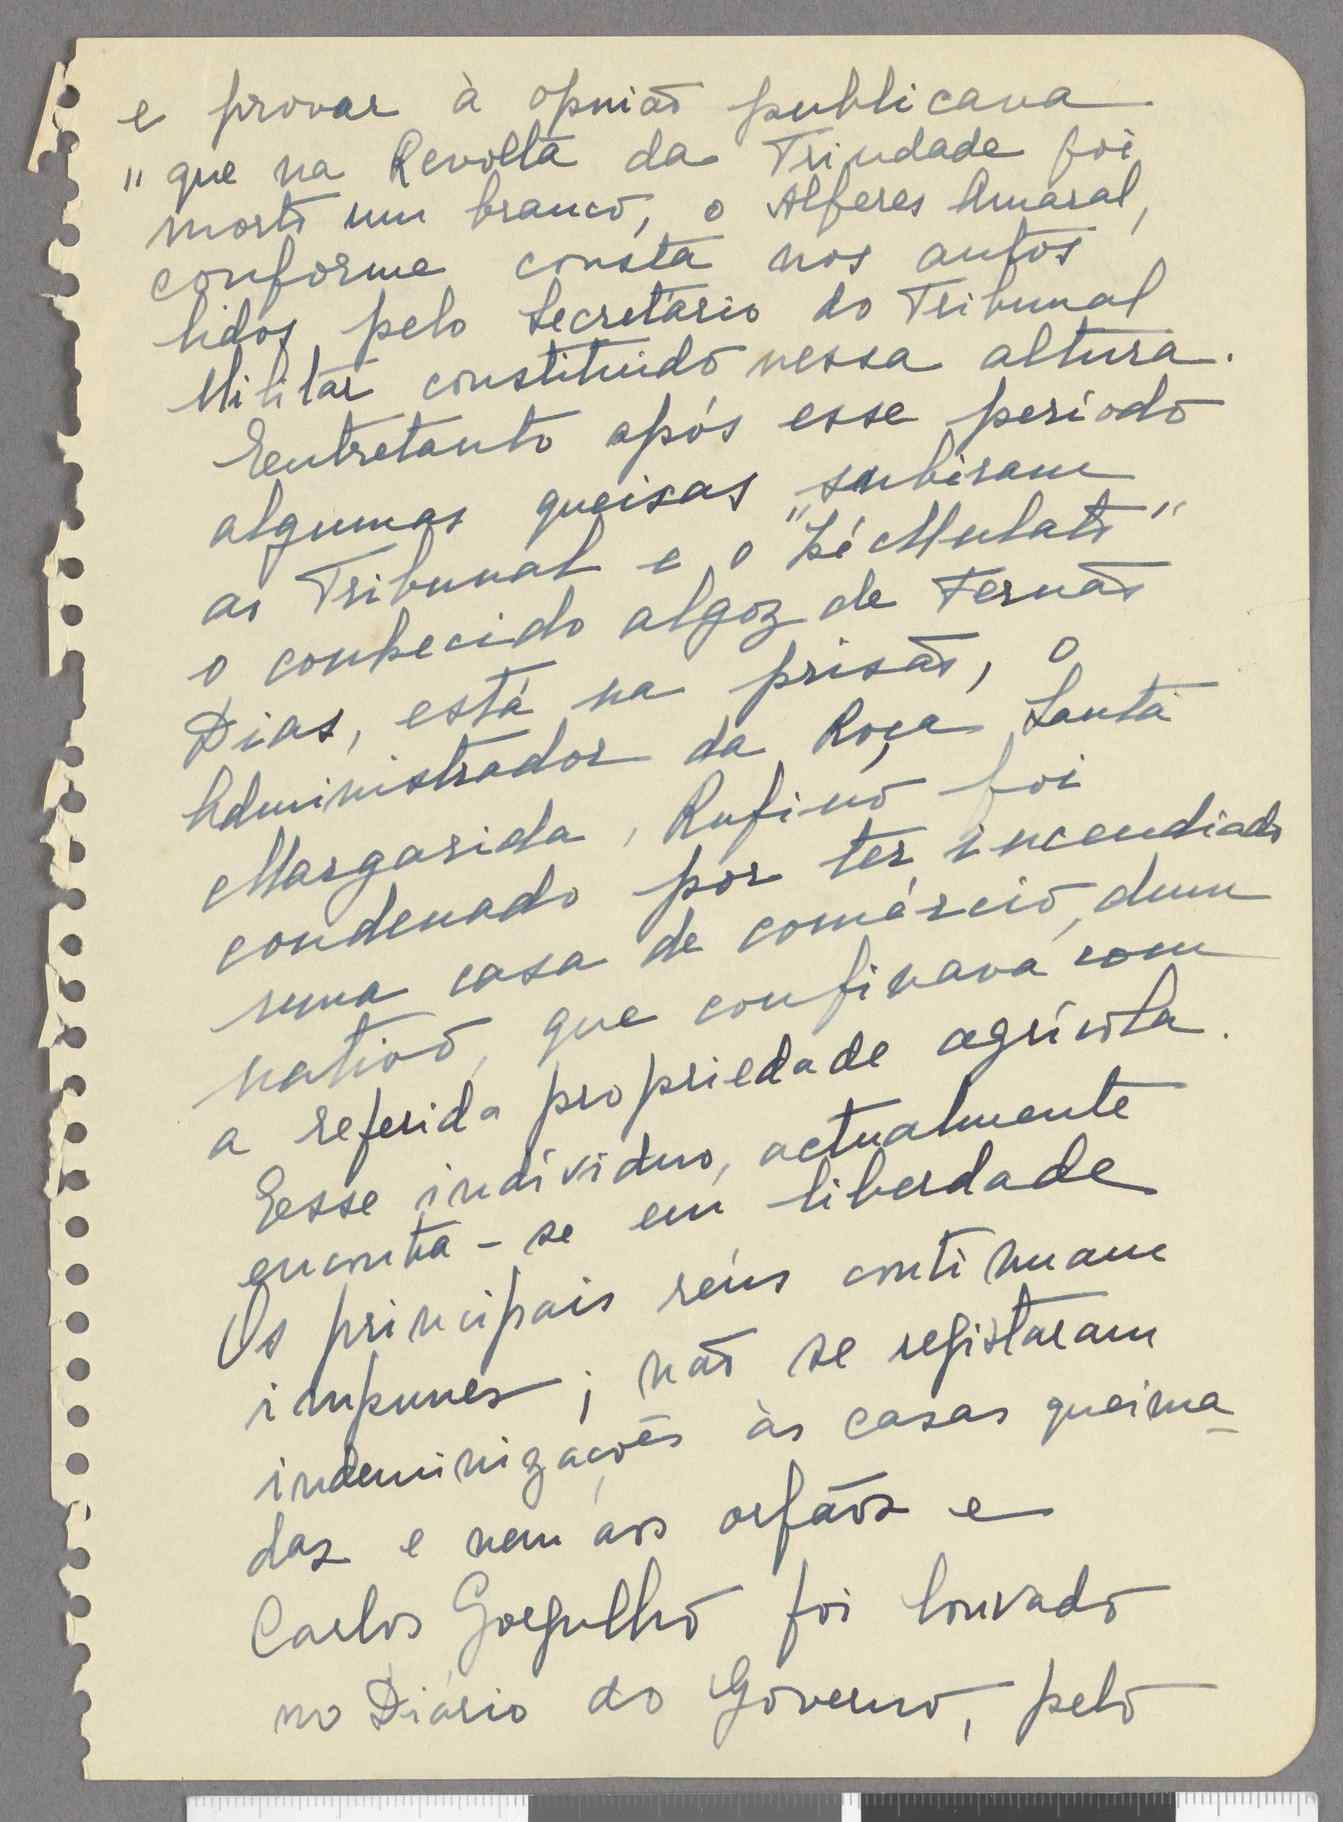 e provar à opnião publicana
" que na Revolta da Trindade foi
morto um branco, o Alferes Amaral,
conforme consta nos autos
lidos pelo Secretário do Tribunal
Militar constituido nessa altura.
Entretanto após esse periodo
algumas queixas subiram
ao Tribunal e o "Zé Mulato"
o conhecido algoz de Fernão
Dias, está na prisão, o
Administrador da Roça Santa
Margarida, Rufino foi
condenado por ter incendiado
uma casa de comércio, dum
nativo, que confinava com
a referida propriedade agrícola.
Esse indíviduo, actualmente
encontra-se em liberdade
Os principais réus continuam
impunes; não se registaram
indeminizações às casas queima-
das e nem aos orfãos e
Carlos Gorgulho foi louvado
no Diário do Governo, pelo